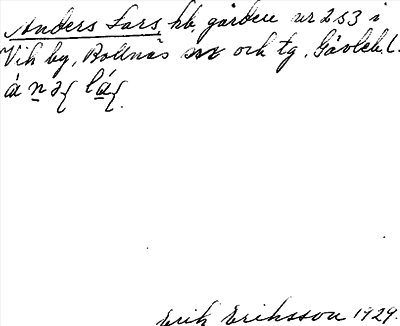 Anders Lars, hb, gården nr 2 o 3 i
Vik by, Bollnäs sn och tg, Gävleb. l.
Erik Eriksson 1929.